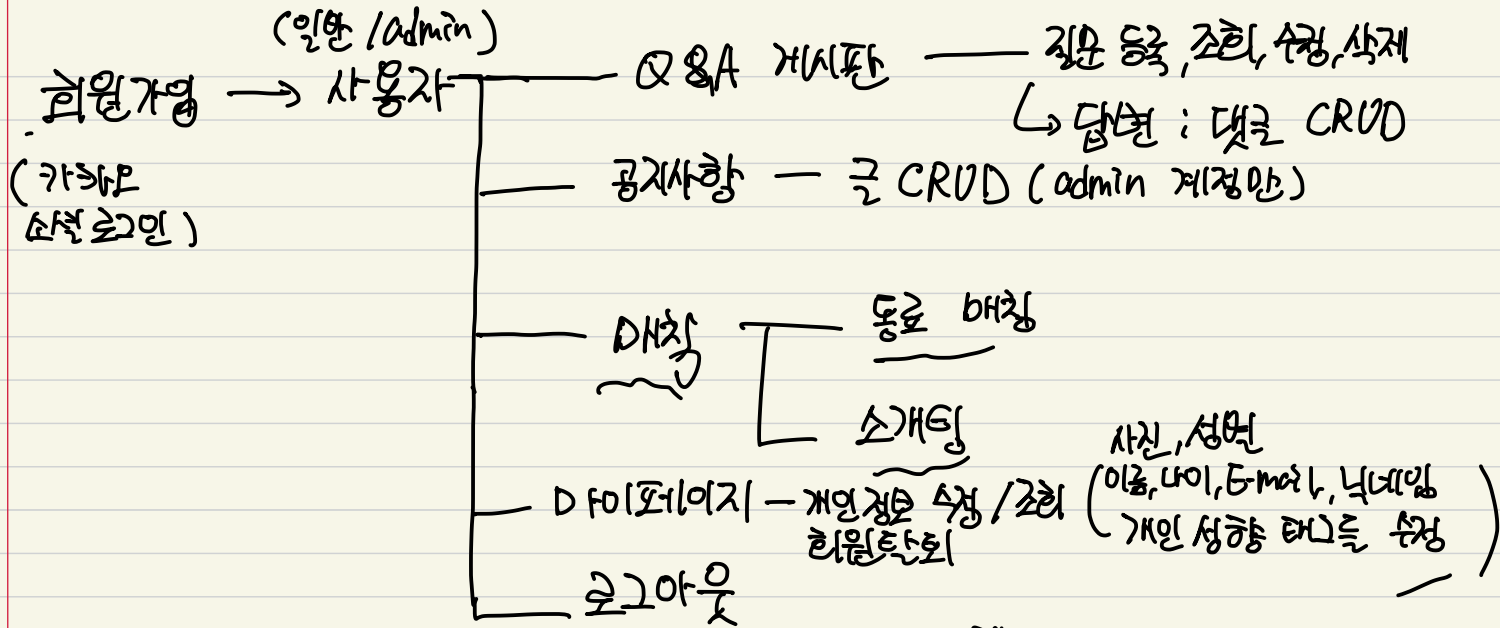 (일반 / admin)
회원가입 → 사용자
(카카오
소셜로그인)
Q&A 게시판 — 질문 등록, 조회, 수정, 삭제
↳ 답변 : 댓글 CRUD
공지사항 — 글 CRUD (admin 계정만)
매칭
동료 매칭
소개팅
마이페이지 — 개인정보 수정 / 조회
회원탈퇴
사진, 성별
(이름, 나이, E-mail, 닉네임
개인 성향 태그들 수정)
로그아웃